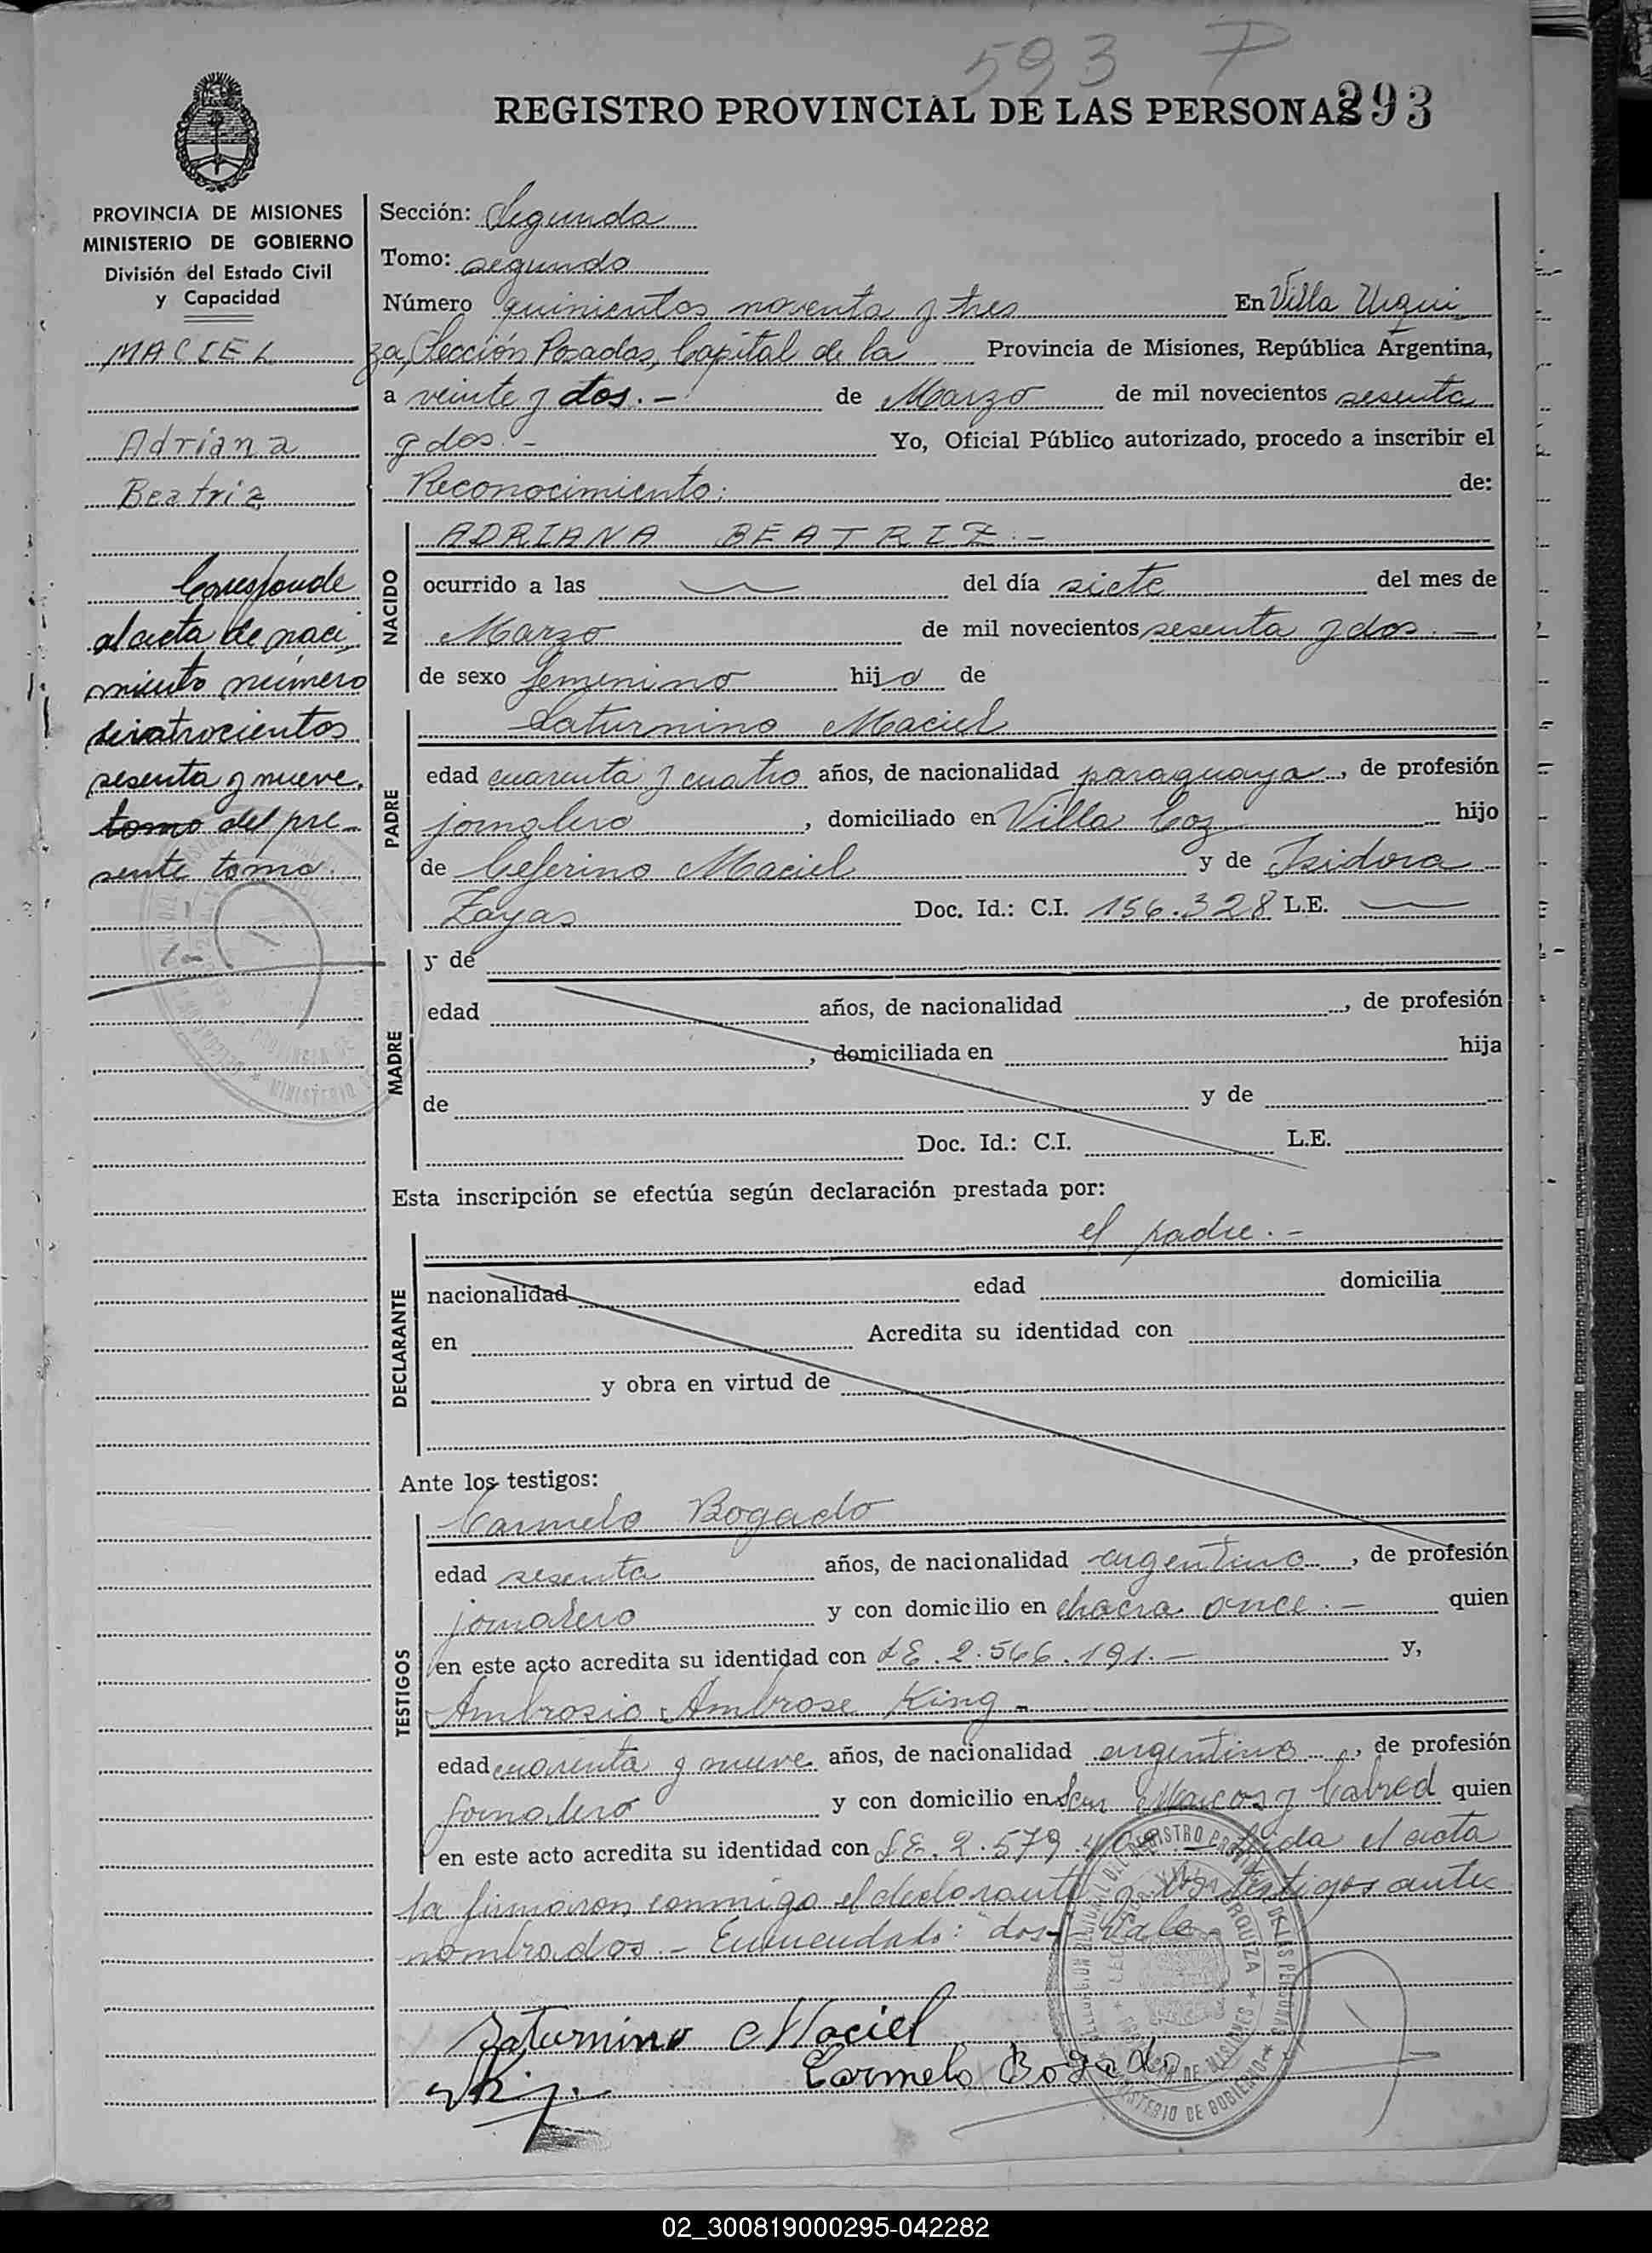 593 7
REGISTRO PROVINCIAL DE LAS PERSONAS 293
PROVINCIA DE MISIONES
MINISTERIO DE GOBIERNO
División del Estado Civil
y Capacidad
MACIEL
Adriana
Beatriz
Corresponde
al acta de naci
miento número
cuatrocientos
sesenta y nueve.
tomo del pre-
sente tomo.
Sección: Segunda
Tomo: segundo
Número quinientos noventa y tres En Villa Urqui
za, Sección Posadas, Capital de la Provincia de Misiones, República Argentina,
a veinte y dos.- de Marzo de mil novecientos sesenta
y dos.- Yo, Oficial Público autorizado, procedo a inscribir el
Reconocimiento: de:
NACIDO
ADRIANA BEATRIZ.-
ocurrido a las del día siete del mes de
Marzo de mil novecientos sesenta y dos.-
de sexo femenino hija de
PADRE
Saturnino Maciel
edad cuarenta y cuatro años, de nacionalidad paraguaya, de profesión
jornalero, domiciliado en Villa Coz hijo
de Ceferino Maciel y de Isidora
Zayas Doc. Id.: C.I. 156.328 L.E.
MADRE
y de
edad años, de nacionalidad , de profesión
, domiciliada en hija
de y de
Doc. Id.: C.I. L.E.
Esta inscripción se efectúa según declaración prestada por:
el padre.-
DECLARANTE
nacionalidad edad domicilia
en Acredita su identidad con
y obra en virtud de
Ante los testigos:
TESTIGOS
Carmelo Bogado
edad sesenta años, de nacionalidad argentino, de profesión
jornalero y con domicilio en chacra once.- quien
en este acto acredita su identidad con LE. 2.566.191.- y,
Ambrosio Ambrose King-
edad cuarenta y nueve años, de nacionalidad argentino, de profesión
jornalero y con domicilio en San Marcos y Cabred quien
en este acto acredita su identidad con LE. 2.579. Leida el acta
la firmaron conmigo el declarante y los testigos ante
nombrados.- Enmendado: dos- Vale-
Saturnino Maciel
Carmelo Bogado
02_300819000295-042282